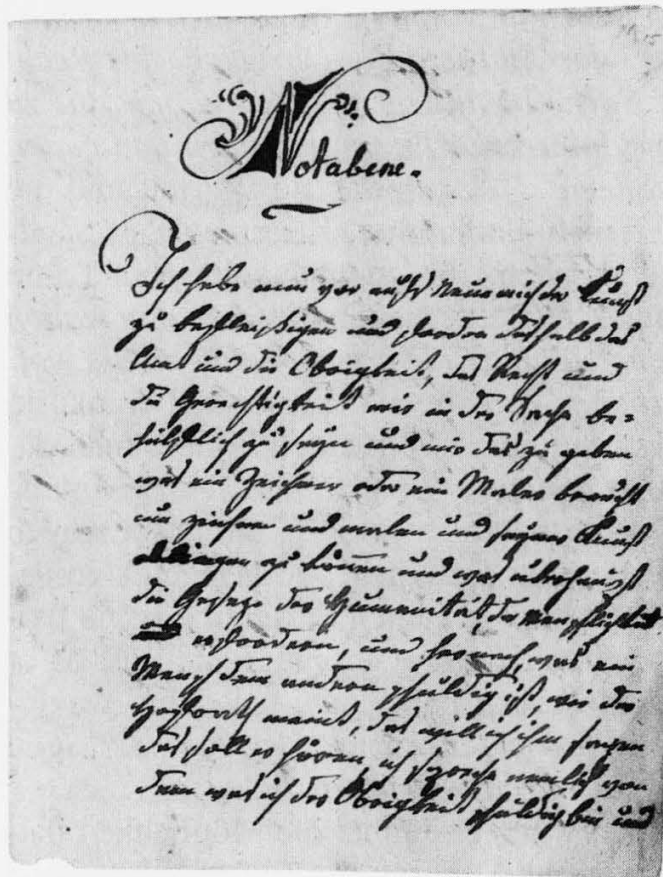 Notabene.
Ich habe nun vor aufs Neue mich der Kunst
zu befleißigen und fordre deshalb das
Amt und die Obrigkeit, das Recht und
die Gerechtigkeit mir in der Sache be=
hülflich zu seyn und mir das zu geben
was ein Zeichner oder ein Maler braucht
um zeichnen und malen und seyner Kunst
obliegen zu können und was überhaupt
die Geseze der Humanität, der Menschlichkeit
erfordern, und hernach, was ein
Mensch dem andern schuldig ist, wie der
meint, das will ich ihm sagen
das soll er hören ich spreche nemlich von
dem was ich der Obrigkeit schuldig bin und